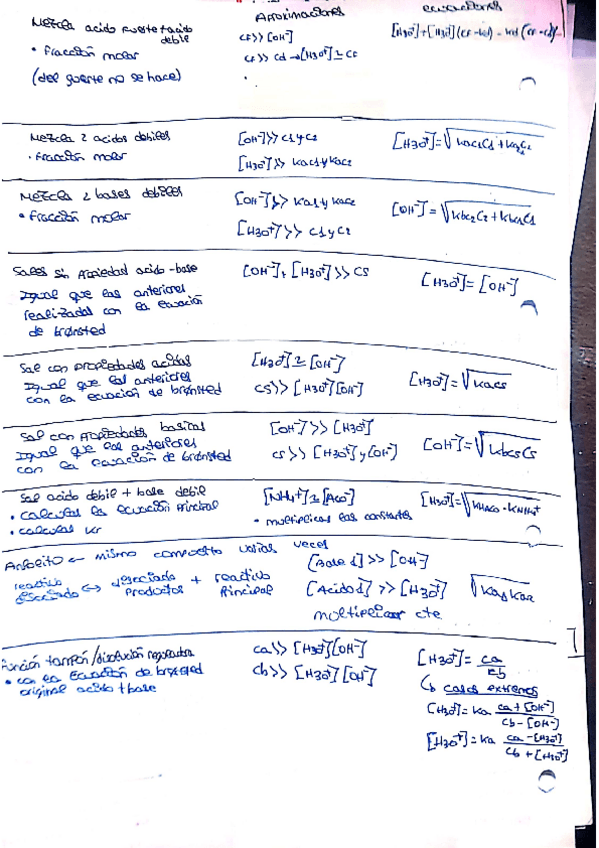 Aproximaciones ecuaciones
Mezcla acido fuerte + acido debil
• fracción molar
(del fuerte no se hace)
cf >> [OH⁻]
cf >> cd → [H₃O⁺] ≃ cf
Mezcla 2 acidos debiles
• fracción molar
[OH⁻] >> c1 y c2
[H₃O⁺] >> kac1 y kac2
[H₃O⁺] = √kac1C1 + ka2C2
Mezcla 2 bases debiles
• fracción molar
[OH⁻] >> ka1 y kac2
[H₃O⁺] >> c1 y c2
[OH⁻] = √kbc2C2 + kbc1C1
Sales sin propiedad acido-base
Igual que las anteriores
realizadas con la ecuación
de brønsted
[OH⁻], [H₃O⁺] >> CS
[H₃O⁺] = [OH⁻]
Sal con propiedades acidas
Igual que las anteriores
con la ecuación de brønsted
[H₃O⁺] ≃ [OH⁻]
CS >> [H₃O⁺][OH⁻]
[H₃O⁺] = √kacs
Sal con propiedades basicas
Igual que las anteriores
con la ecuación de brønsted
[OH⁻] >> [H₃O⁺]
cs >> [H₃O⁺] y [OH⁻]
[OH⁻] = √kbcsCs
Sal acido debil + base debil
• calcular la ecuación principal
• calcular kr
[NH₄⁺] ≃ [AcO⁻]
• multiplicar las constantes
[H₃O⁺] = √KHAcO · KNH₄⁺
Anfolito ← mismo compuesto varias veces
reactivo disociado ↔ disociado productos + reactivo principal
[Base 1] >> [OH⁻]
[Acido 1] >> [H₃O⁺]
multiplicar cte
√ka1ka2
función tampón/disolución reguladora
• con la ecuación de brønsted
original acido + base
ca >> [H₃O⁺][OH⁻]
cb >> [H₃O⁺][OH⁻]
[H₃O⁺] = ca/cb
↳ casos extremos
[H₃O⁺] = ka ca + [OH⁻]/cb - [OH⁻]
[H₃O⁺] = ka ca - [H₃O⁺]/cb + [H₃O⁺]